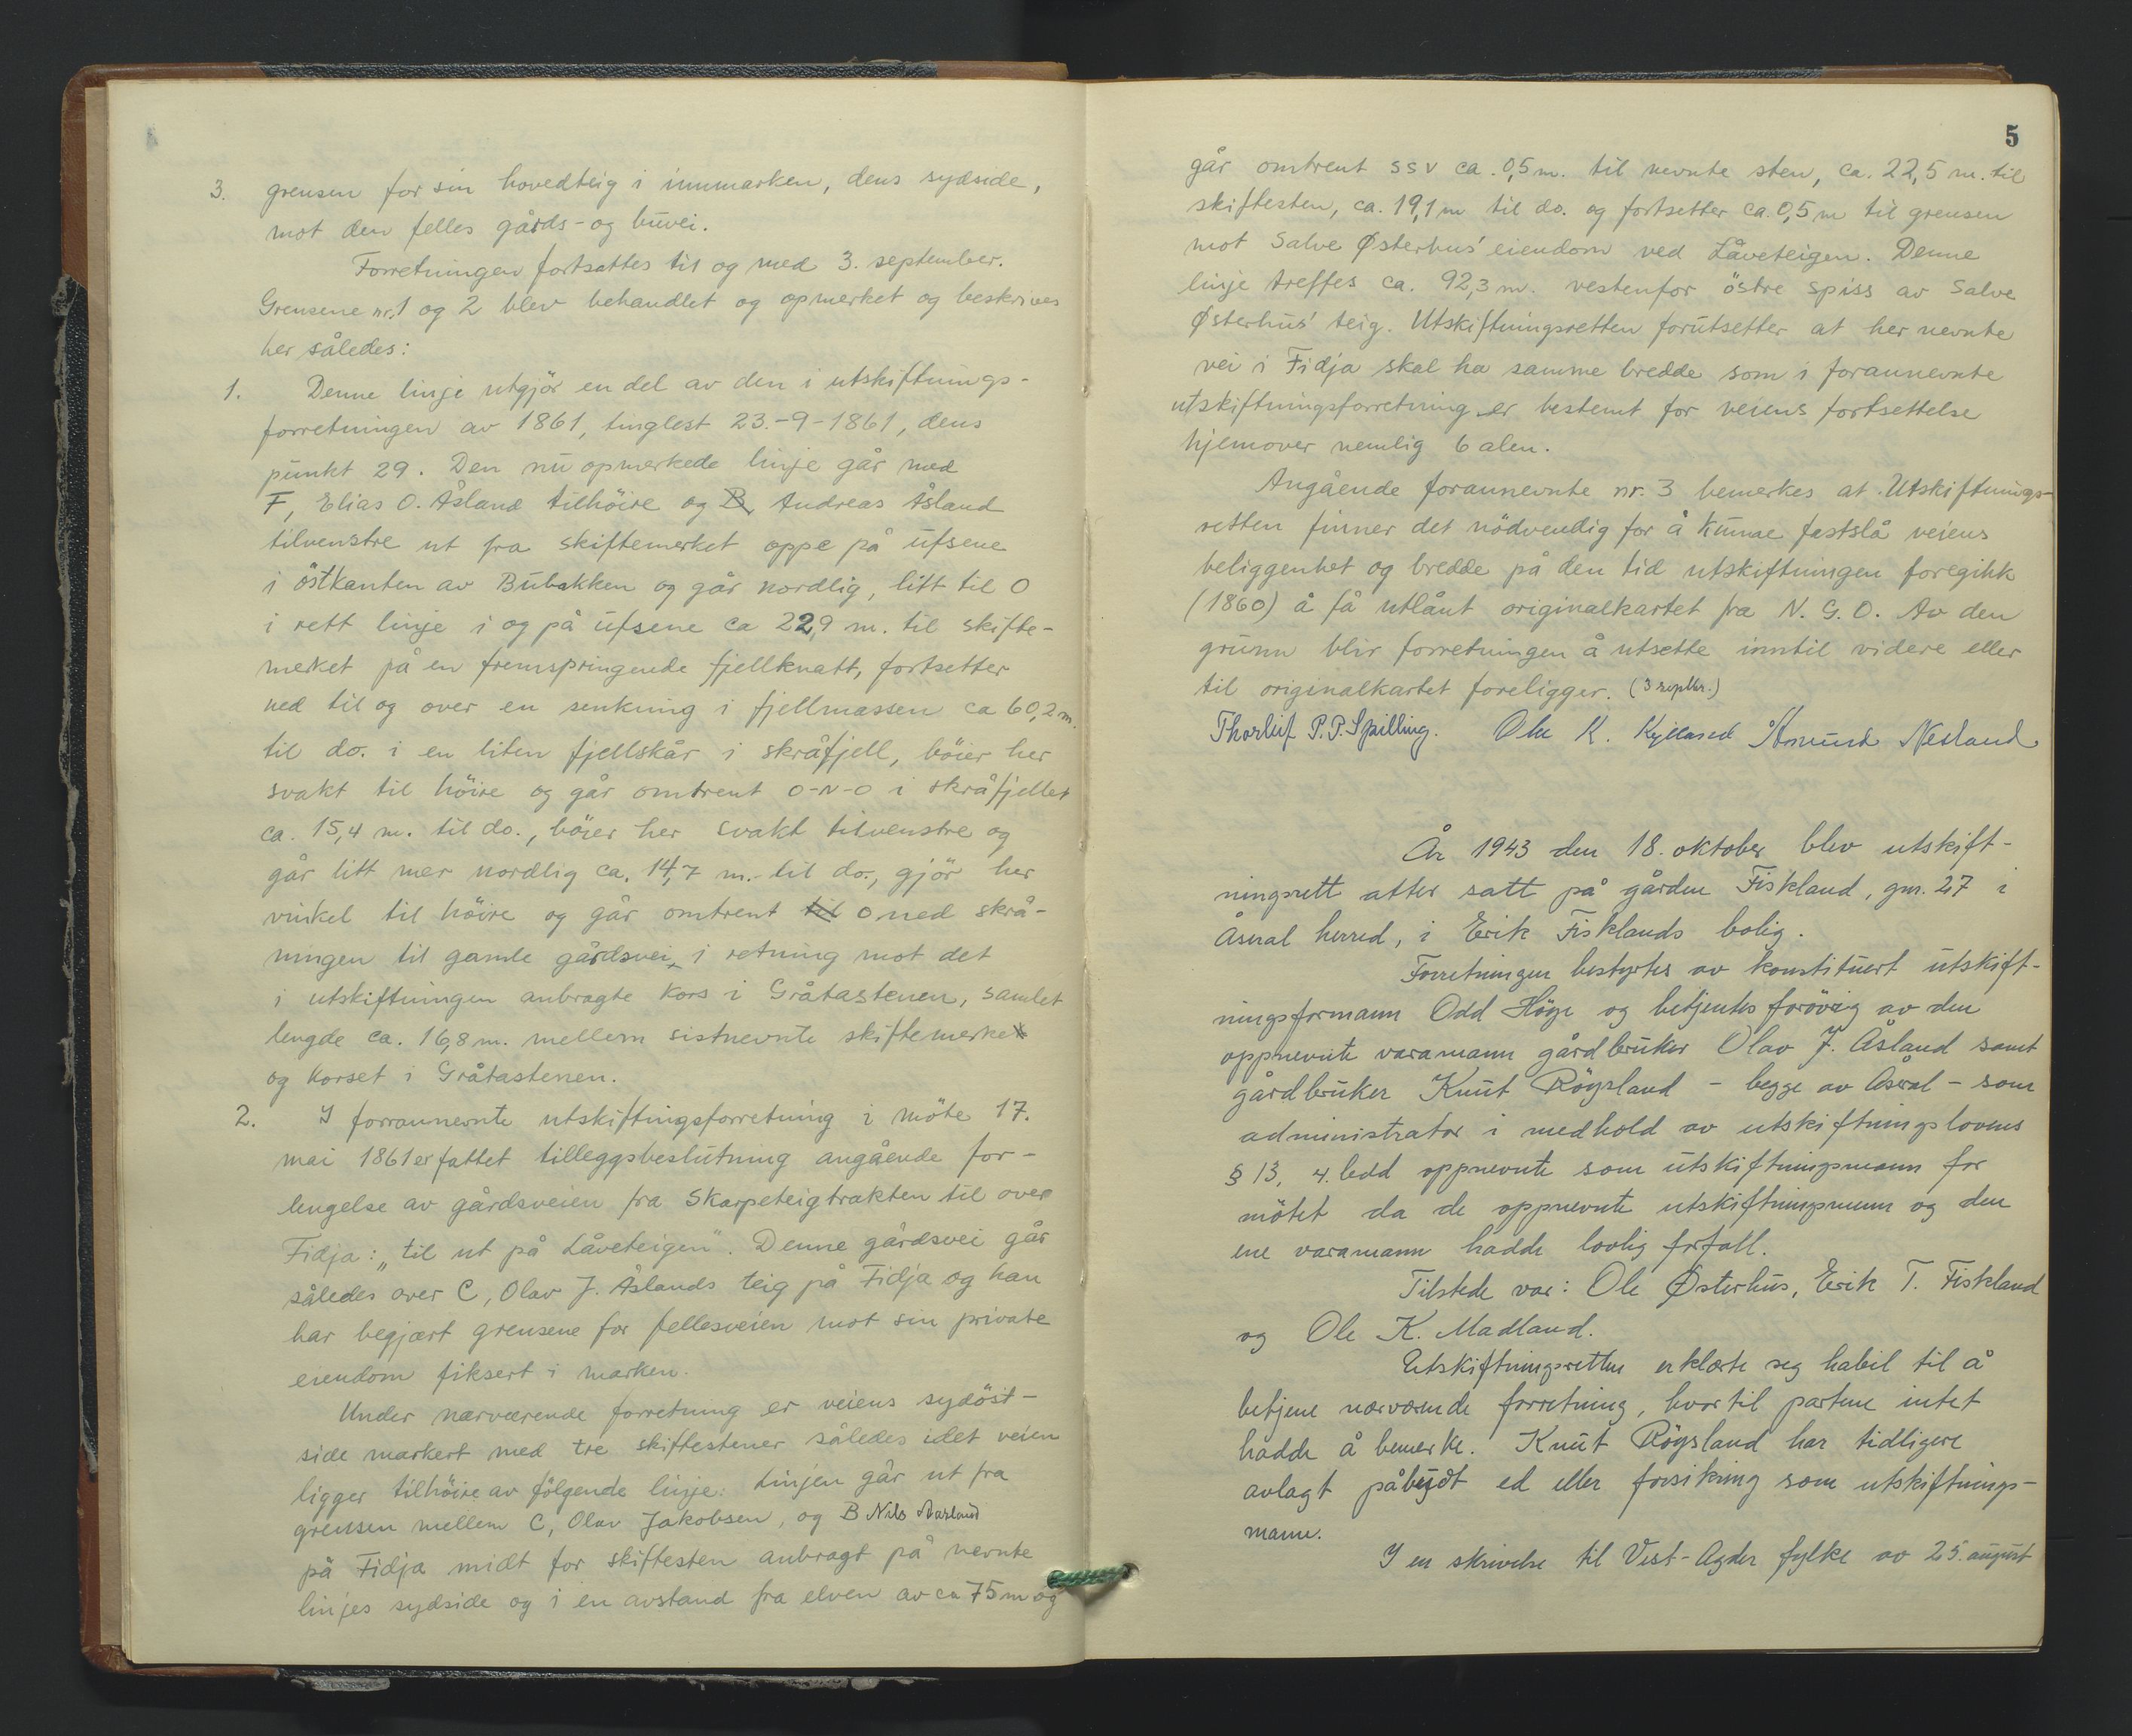 3. grensen for sin hovedteig i innmarken, dens sydside,
mot den felles gårds- og buvei.
Forretningen fortsattes til og med 3. september.
Grensene nr. 1 og 2 blev behandlet og opmerket og beskrives
her således:
1. Denne linje utgjör en del av den i utskiftnings-
forretningen av 1861, tinglest 23.-9-1861, dens
punkt 29. Den nu opmerkede linje går med
F, Elias O. Åsland tilhöire og B, Andreas Åsland
tilvenstre ut fra skiftemerket oppe på ufsene
i östkanten av Bubakken og går nordlig, litt til O
i rett linje i og på ufsene ca 22,9 m. til skifte-
merket på en fremspringende fjellknatt, fortsetter
ned til og over en senkning i fjellmassen ca 60,2 m.
til do. i en liten fjellskår i skråfjell, böier her
svakt til höire og går omtrent O-N-O i skråfjellet
ca. 15,4 m. til do., böier her svakt tilvenstre og
går litt mer nordlig ca. 14,7 m. til do., gjör her
vinkel til höire og går omtrent til O ned skrå-
ningen til gamle gårdsvei, i retning mot det
i utskiftningen anbragte kors i Gråtastenen, samlet
lengde ca. 16,8 m. mellem sistnevnte skiftemerke
og korset i Gråtastenen.
2. I forrannevnte utskiftingsforretning i möte 17.
mai 1861 er fattet tilleggsbeslutning angående for-
lengelse av gårdsveien fra Skarpeteigtrakten til over
Fidja: „til ut på Låveteigen". Denne gårdsvei går
således over C, Olav J. Åslands teig på Fidja og han
har begjært grensene for fellesveien mot sin private
eiendom fiksert i marken.
Under nærværende forretning er veiens sydöst-
side markert med tre skiftestener således idet veien
ligger tilhöire av fölgende linje: Linjen går ut fra
grensen mellem C, Olav Jakobsen, og B Nils Aasland
på Fidja midt for skiftesten anbragt på nevnte
linjes sydside og i en avstand fra elven av ca 75 m og
5
går omtrent SSV ca. 0,5 m. til nevnte sten, ca. 22,5 m. til
skiftesten, ca. 19,1 m til do. og fortsetter ca. 0,5 m til grensen
mot Salve Østerhus' eiendom ved Låveteigen. Denne
linje treffes ca. 92,3 m. vestenfor östre spiss av Salve
Østerhus' teig. Utskiftningsretten forutsetter at her nevnte
vei i Fidja skal ha samme bredde som i forannevnte
utskiftningsforretning er bestemt for veiens fortsettelse
hjemover nemlig 6 alen.
Angående forannevnte nr. 3 bemerkes at Utskiftnings-
retten finner det nödvendig for å kunne fastslå veiens
beliggenhet og bredde på den tid utskiftningen foregikk
(1860) å få utlånt originalkartet fra N. G. O. Av den
grunn blir forretningen å utsette inntil videre eller
til originalkartet foreligger. (3 septbr.)
Thorleif P. P. Spilling. Ole K. Kylland Åmund Nesland
År 1943 den 18. oktober blev utskift-
ningsrett atter satt på gården Fiskland, gnr. 27 i
Åseral herred, i Erik Fisklands bolig.
Forretningen bestyrtes av konstituert utskift-
ningsformann Odd Höge og betjentes forövrig av den
oppnevnte varamann gårdbruker Olav J. Åsland samt
gårdbruker Knut Röysland – begge av Åseral – som
administrator i medhold av utskiftningslovens
§ 13, 4. ledd oppnevnte som utskiftningsmann for
mötet da de oppnevnte utskiftningsmenn og den
ene varamann hadde lovlig forfall.
Tilstede var: Ole Østerhus, Erik T. Fiskland
og Ole K. Madland.
Utskiftningsretten erklærte seg habil til å
betjene nærværende forretning, hvortil partene intet
hadde å bemerke. Knut Röysland har tidligere
avlagt påbydt ed eller forsikring som utskiftnings-
mann.
I en skrivelse til Vest-Agder fylke av 25. august